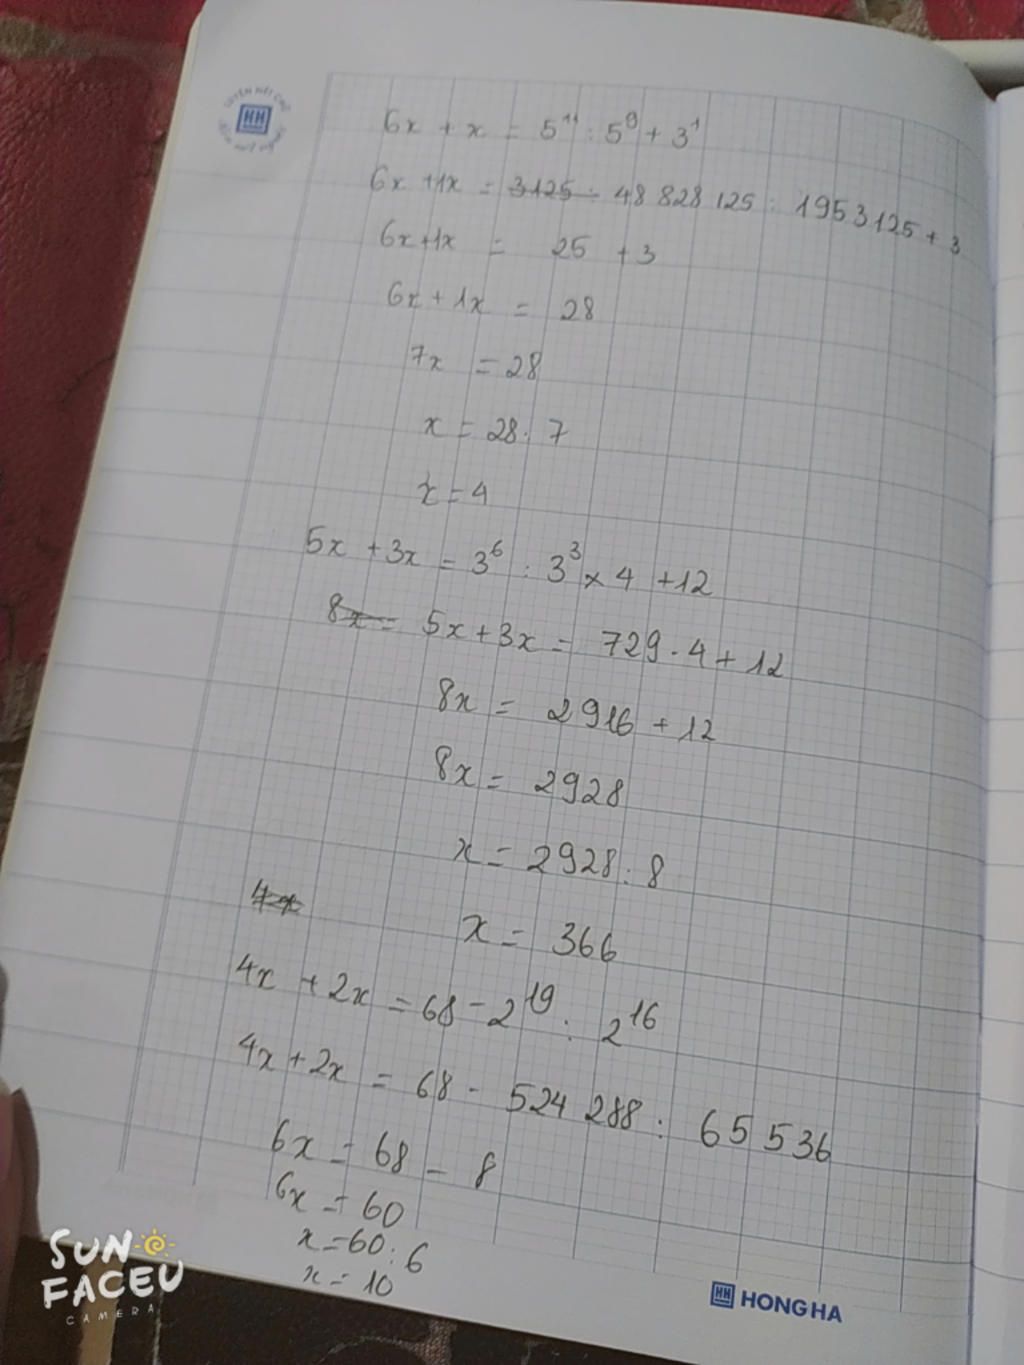 HH
6x + x = 5¹¹ : 5⁹ + 3¹
6x + 1x = 3125 : 48 828 125 : 1953125 + 3
6x + 1x = 25 + 3
6x + 1x = 28
7x = 28
x = 28 : 7
x = 4
5x + 3x = 3⁶ : 3³ × 4 + 12
8x = 5x + 3x = 729 . 4 + 12
8x = 2916 + 12
8x = 2928
x = 2928 : 8
4x
x = 366
4x + 2x = 68 - 2¹⁹ : 2¹⁶
4x + 2x = 68 - 524 288 : 65 536
6x = 68 - 8
6x = 60
x = 60 : 6
x = 10
SUN
FACEU
CAMERA
HH HONG HA